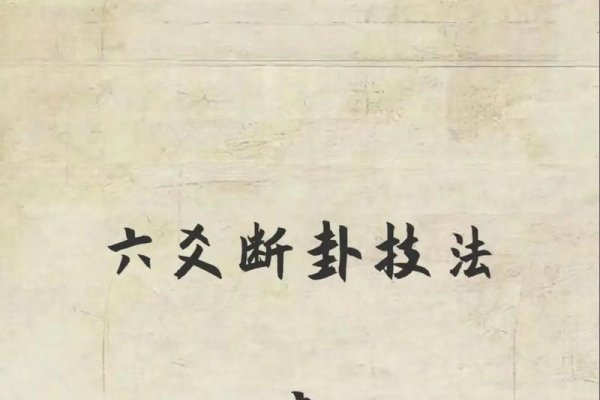 六爻断卦技法